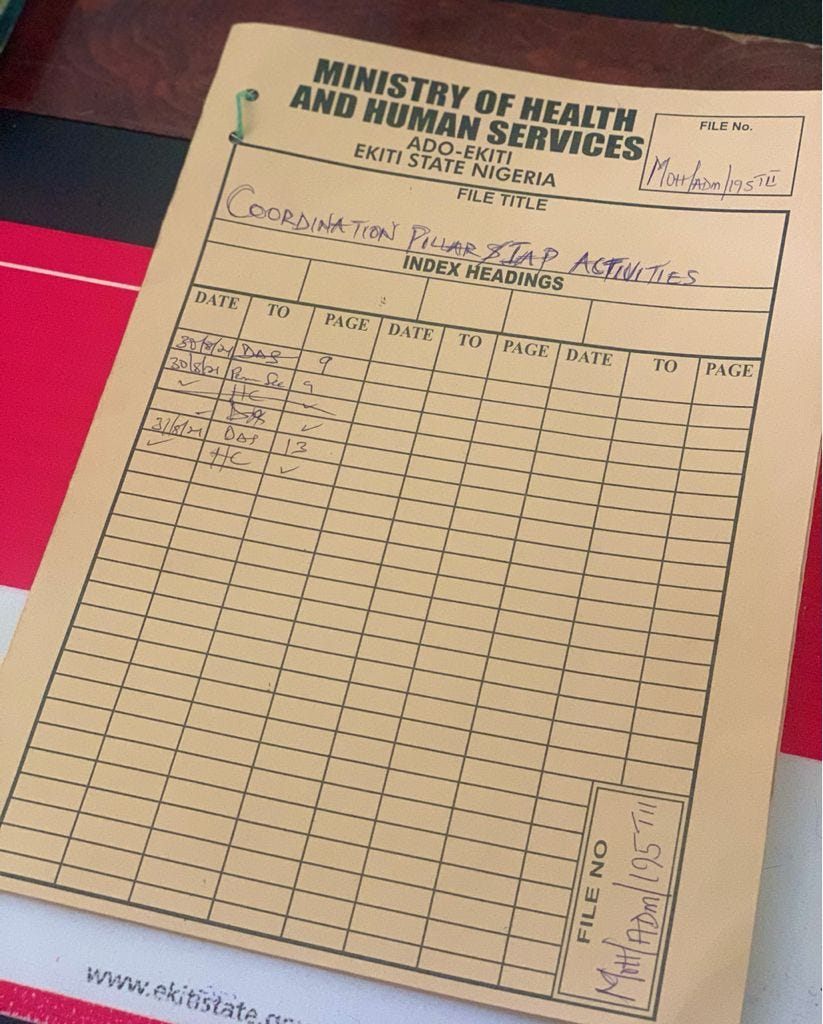 MINISTRY OF HEALTH
AND HUMAN SERVICES
ADO-EKITI
EKITI STATE NIGERIA
FILE No.
MOH/ADM/195 TIII
FILE TITLE
COORDINATION PILLAR & IAP ACTIVITIES
INDEX HEADINGS
DATE TO PAGE DATE TO PAGE DATE TO PAGE
30/8/21 DAS 9
30/8/21 Perm Sec 9
✓ HC ✓
✓ DAS ✓
31/8/21 DAS 13
✓ HC ✓
FILE NO
MOH/ADM/195 TIII
www.ekitistate.go